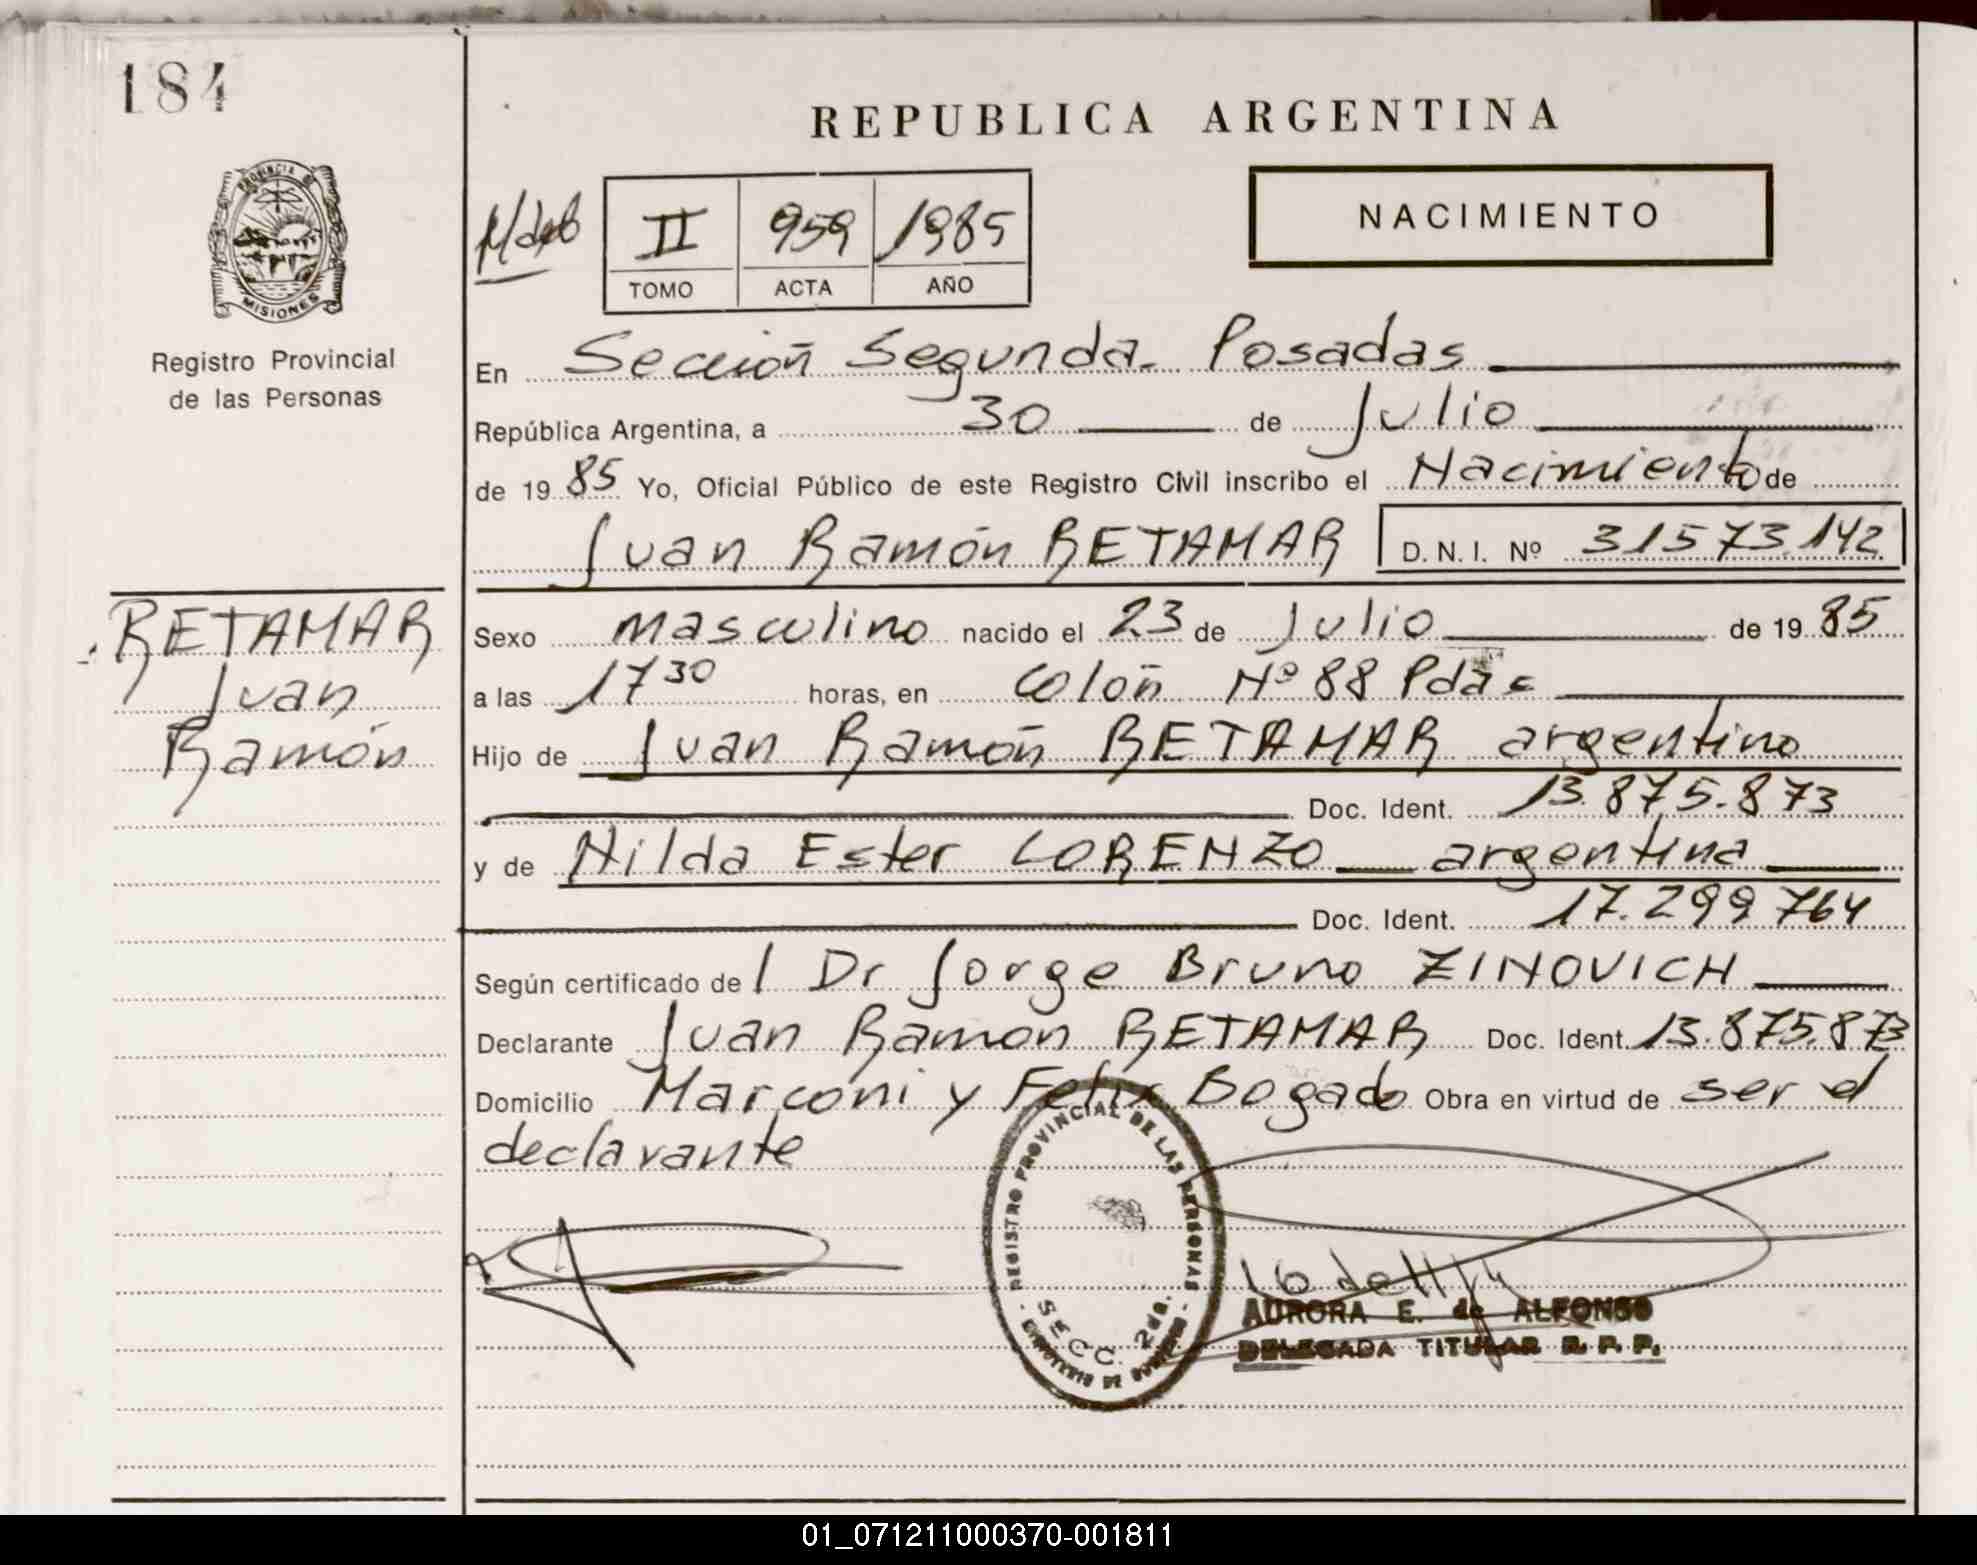 184
REPUBLICA ARGENTINA
PROVINCIA DE
MISIONES
Registro Provincial
de las Personas
II 959 1985
TOMO ACTA AÑO
NACIMIENTO
En Sección Segunda. Posadas
República Argentina, a 30 de Julio
de 19 85 Yo, Oficial Público de este Registro Civil inscribo el Nacimiento de
Juan Ramón RETAMAR D.N.I. Nº 31573.142
RETAMAR
Juan
Ramón
Sexo masculino nacido el 23 de Julio de 19 85
a las 17 30 horas, en Colón Nº 88 Pdas
Hijo de Juan Ramón RETAMAR argentino
Doc. Ident. 13.875.873
y de Nilda Ester LORENZO argentina
Doc. Ident. 17.299.764
Según certificado de l Dr Jorge Bruno ZINOVICH
Declarante Juan Ramon RETAMAR Doc. Ident. 13.875.873
Domicilio Marconi y Felix Bogado Obra en virtud de ser el
declarante
REGISTRO PROVINCIAL DE LAS PERSONAS
SECC. 2da.
MINISTERIO DE GOBIERNO
AURORA E. de ALFONSO
DELEGADA TITULAR R. P. P.
01_071211000370-001811